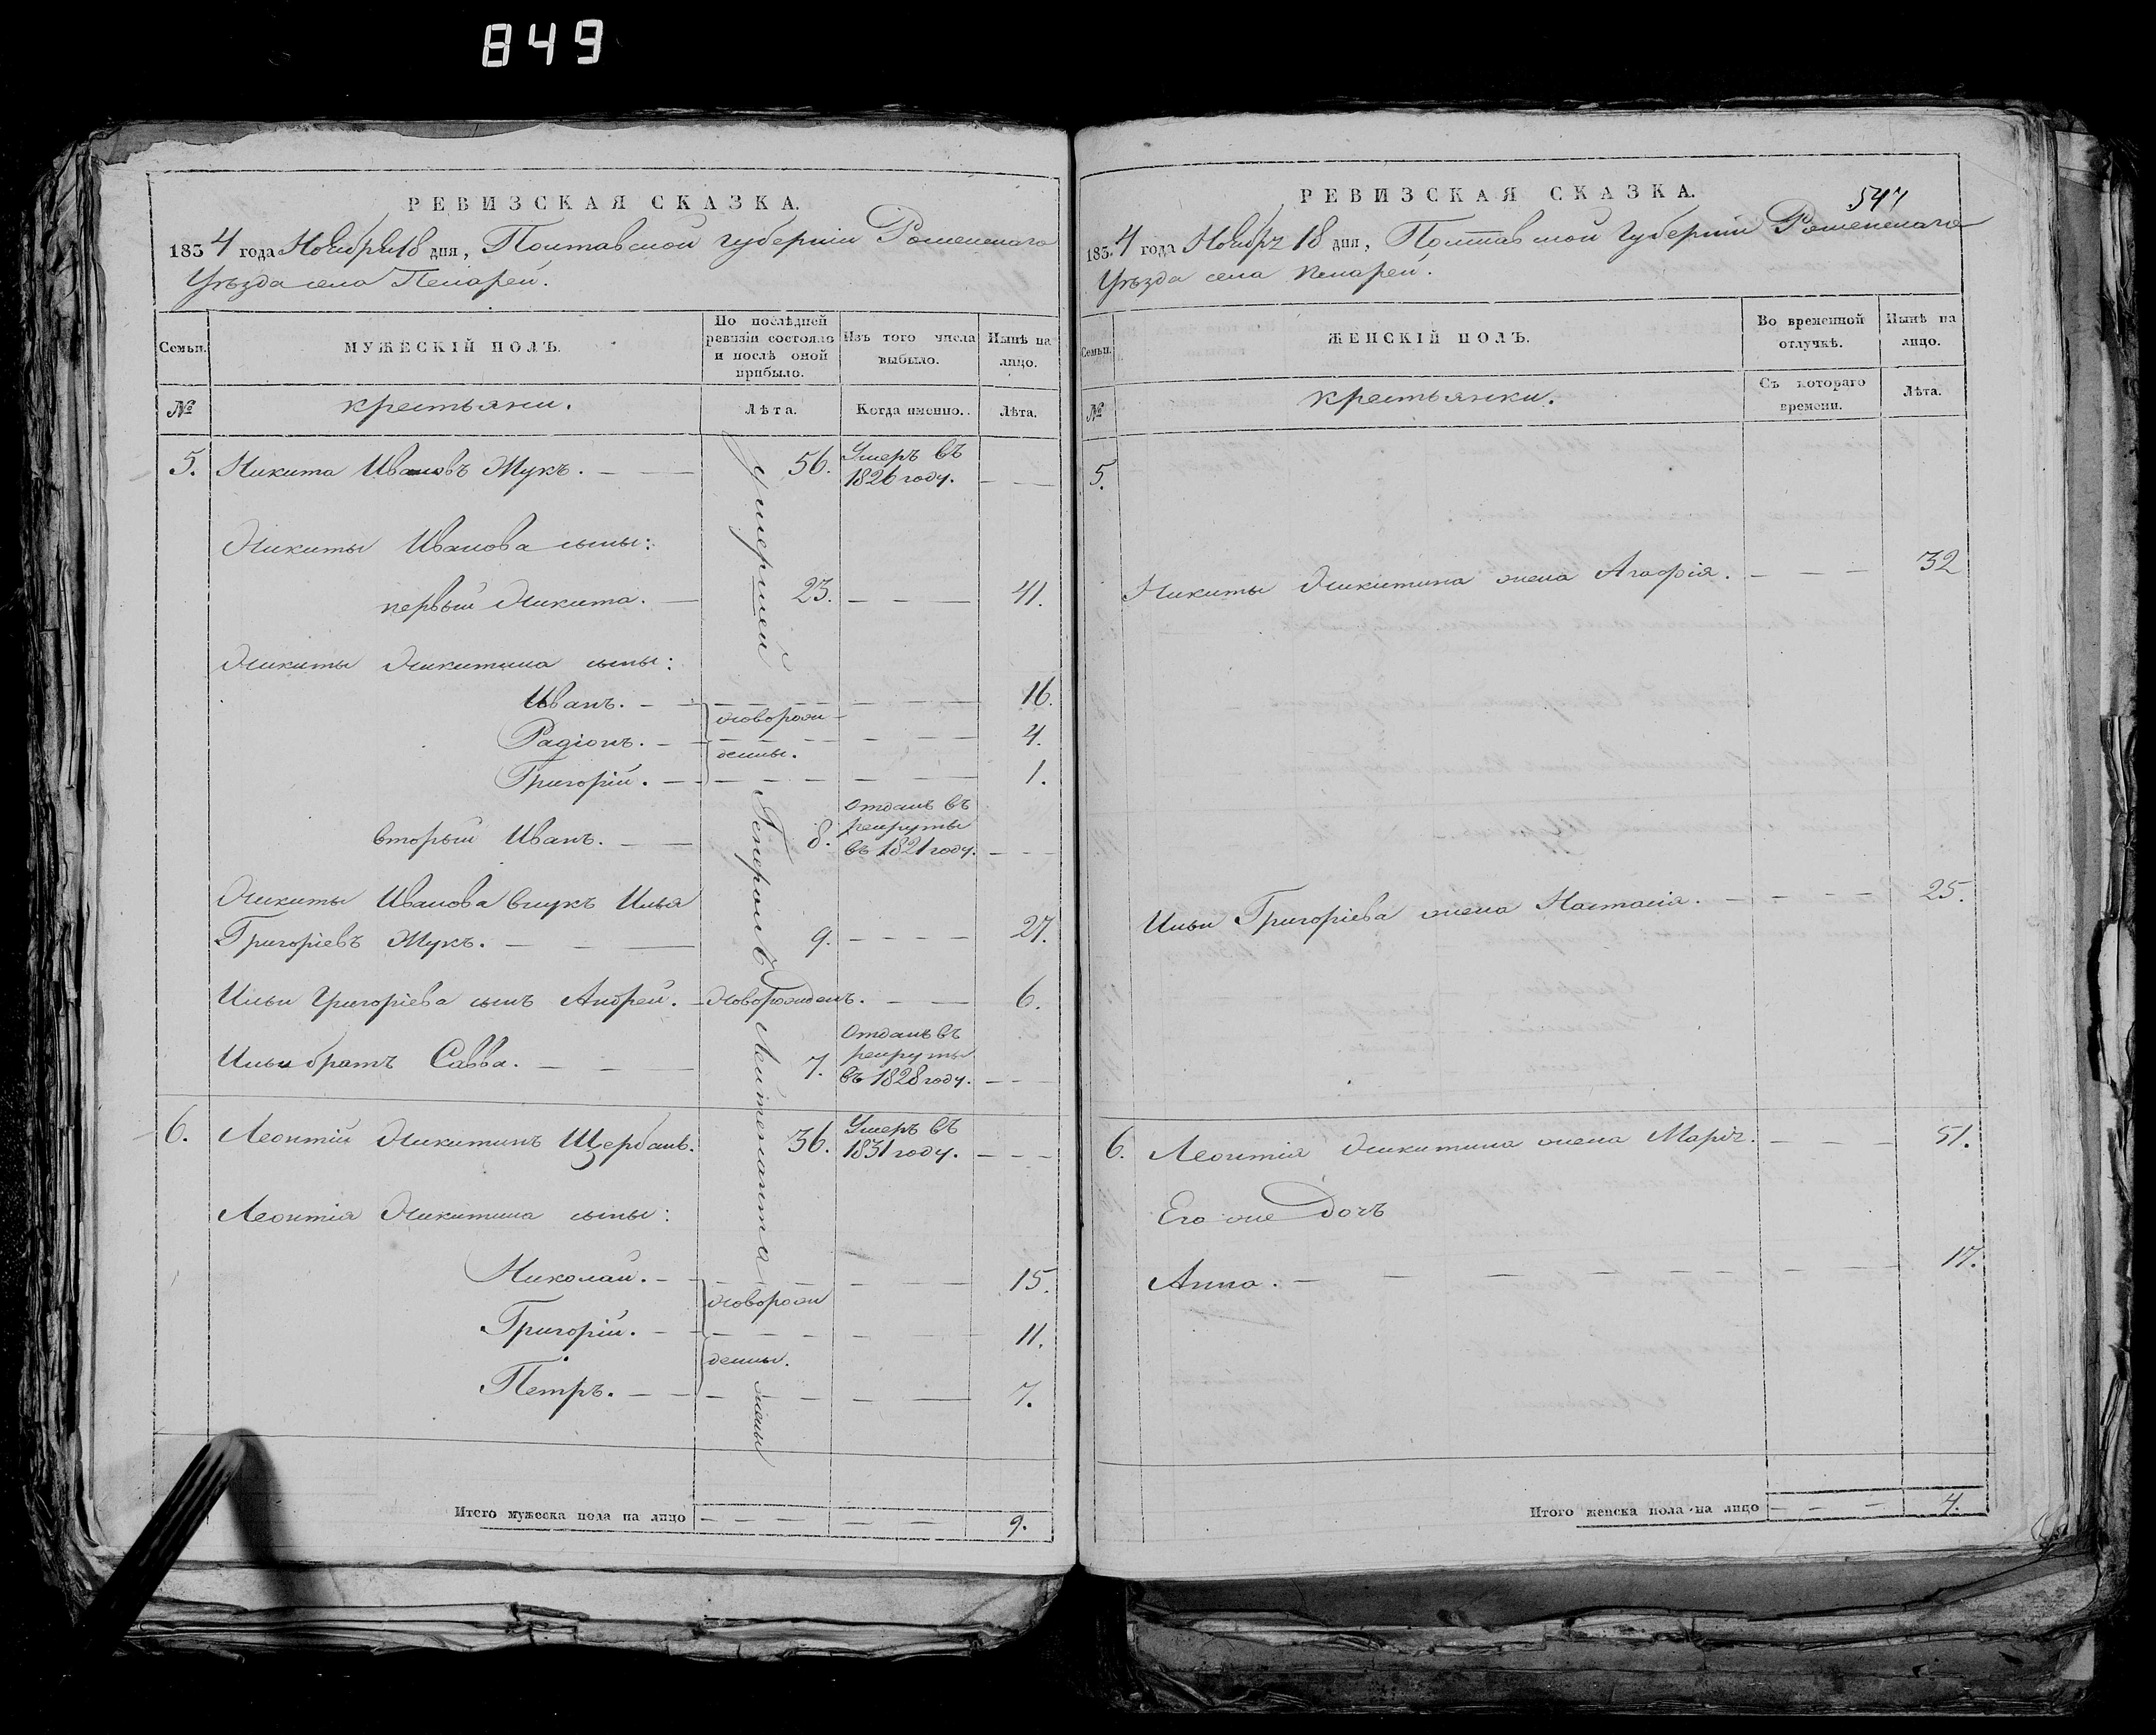 849
РЕВИЗСКАЯ СКАЗКА.
1834 года Ноября 18 дня, Полтавской губернии Роменского
Уезда села Пекарей.
Семьи.
МУЖЕСКІЙ ПОЛЪ.
По послѣдней ревизіи состояло и послѣ оной прибыло.
Изъ того числа выбыло.
Нынѣ на лицо.
№
крестьяни.
Лѣта.
Когда именно.
Лѣта.
5. Никита Ивановъ Жукъ. — 56. Умеръ въ 1826 году. — —
Никиты Иванова сыны:
первый Никита. — 23. — — — 41.
Никиты Никитина сыны:
Иванъ. — — — — — 16.
новорож
Радіонъ. — — — — — 4.
денны.
Григорій. — — — — — 1.
вторый Иванъ. — — 8. Отданъ въ рекруты въ 1821 году. — —
Никиты Иванова внукъ Илья
Григоріевъ Жукъ. — — — 9. — — — — 27.
Ильи Григоріева сынъ Андрей. — Новорожденъ. — — 6.
Ильи братъ Савва. — — — 7. Отданъ въ рекруты въ 1828 году. — —
6. Леонтій Никитинъ Щербань. 36. Умеръ въ 1831 году. — — —
Леонтія Никитина сыны:
Николай. — — — — — 15.
новорож
Григорій. — — — — — 11.
денны.
Петръ. — — — — — 7.
умершей Генералъ Лейтенанта жены
Итого мужеска пола на лицо — — — — — — 9.
547
РЕВИЗСКАЯ СКАЗКА.
1834 года Ноября 18 дня, Полтавской Губерніи Роменского
Уѣзда села Пекарей.
Семьи.
ЖЕНСКІЙ ПОЛЪ.
Во временной отлучкѣ.
Нынѣ на лицо.
№
крестьянки.
Съ котораго времени.
Лѣта.
5.
Никиты Никитина жена Агафія. — — — 32
Ильи Григоріева жена Настасія. — — — 25.
6. Леонтія Никитина жена Марія. — — — 51.
Его же дочъ
Анна. — — — — — — — — 17.
Итого женска пола на лицо — — — 4.